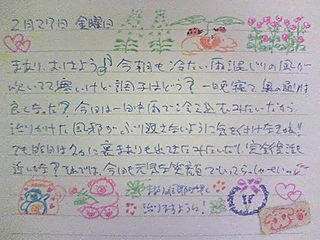 2月27日 金曜日
まあり、おはよう 今朝も冷たい雨混じりの風が
吹いてて寒いけど調子はどう？一晩寝て具合は
良くなった？今日は一日中雨で冷え込むみたいだから
治りかけた風邪がぶり返さないように気を付けなきゃね!!
でも昨日は久々に まありも出せたみたいだし
近いかな？それでは、今日も元気な笑顔でいってらっしゃ〜い
治りますように！